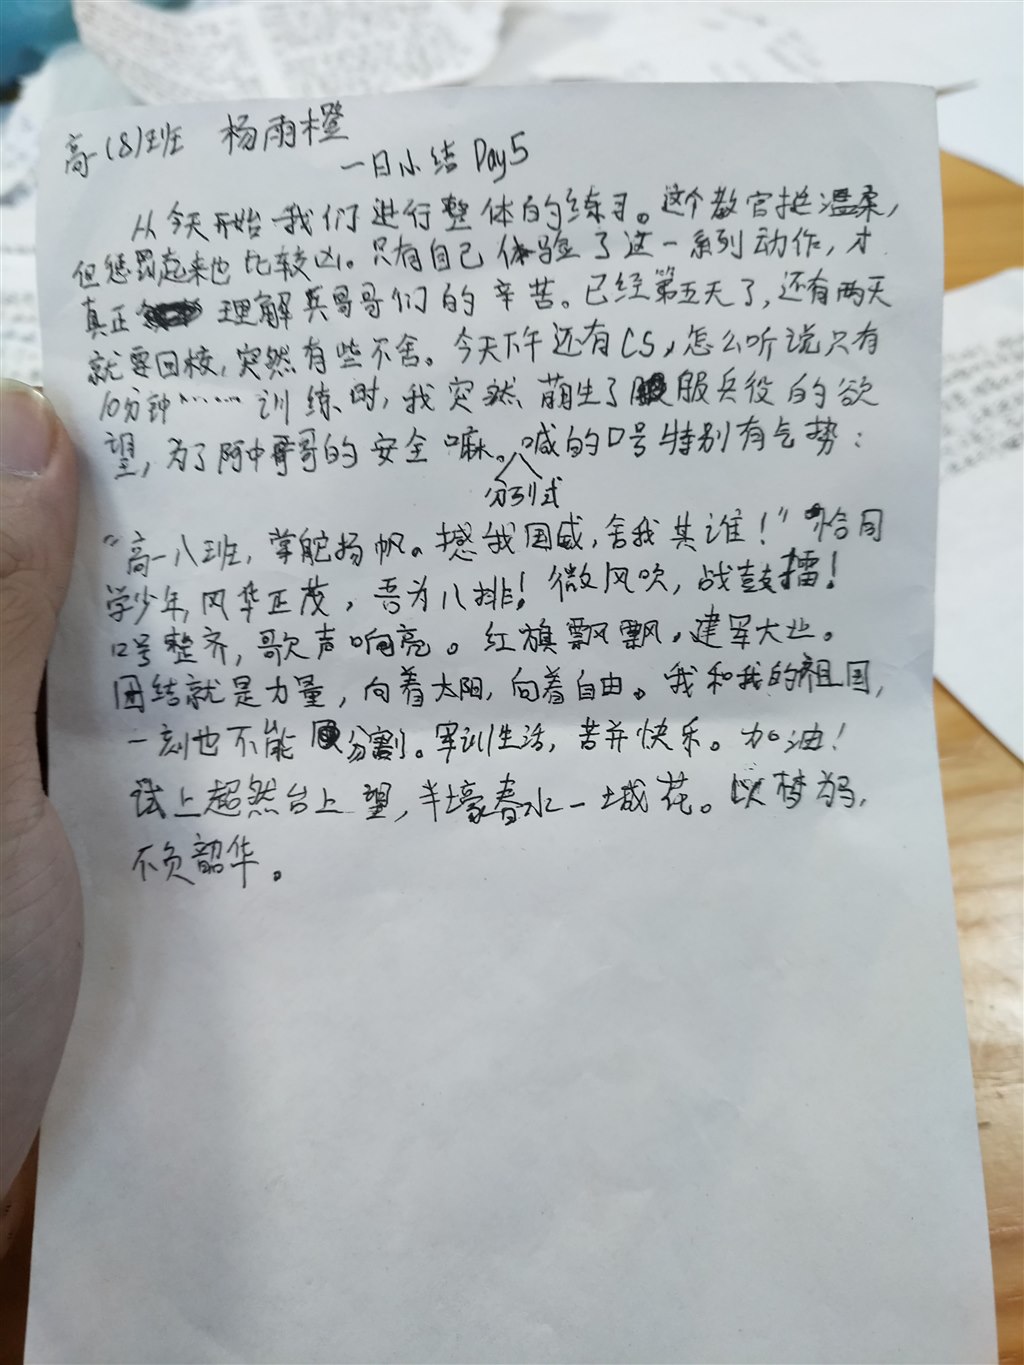 高一(8)班 杨雨橙
一日小结 Day5
从今天开始我们进行整体的练习。这个教官挺温柔，
但惩罚起来也比较凶。只有自己体验了这一系列动作，才
真正理解兵哥哥们的辛苦。已经第五天了，还有两天
就要回校，突然有些不舍。今天下午还有CS，怎么听说只有
10分钟……训练时，我突然萌生了服兵役的欲
望，为了阿中哥哥的安全嘛。喊的口号特别有气势：
分列式
“高一八班，掌舵扬帆。撼我国威，舍我其谁！”“恰同
学少年，风华正茂，吾为八排！微风吹，战鼓擂！
口号整齐，歌声响亮。红旗飘飘，建军大业。
团结就是力量，向着太阳，向着自由。我和我的祖国，
一刻也不能分割。军训生活，苦并快乐。加油！
试上超然台上望，半壕春水一城花。以梦为马，
不负韶华。